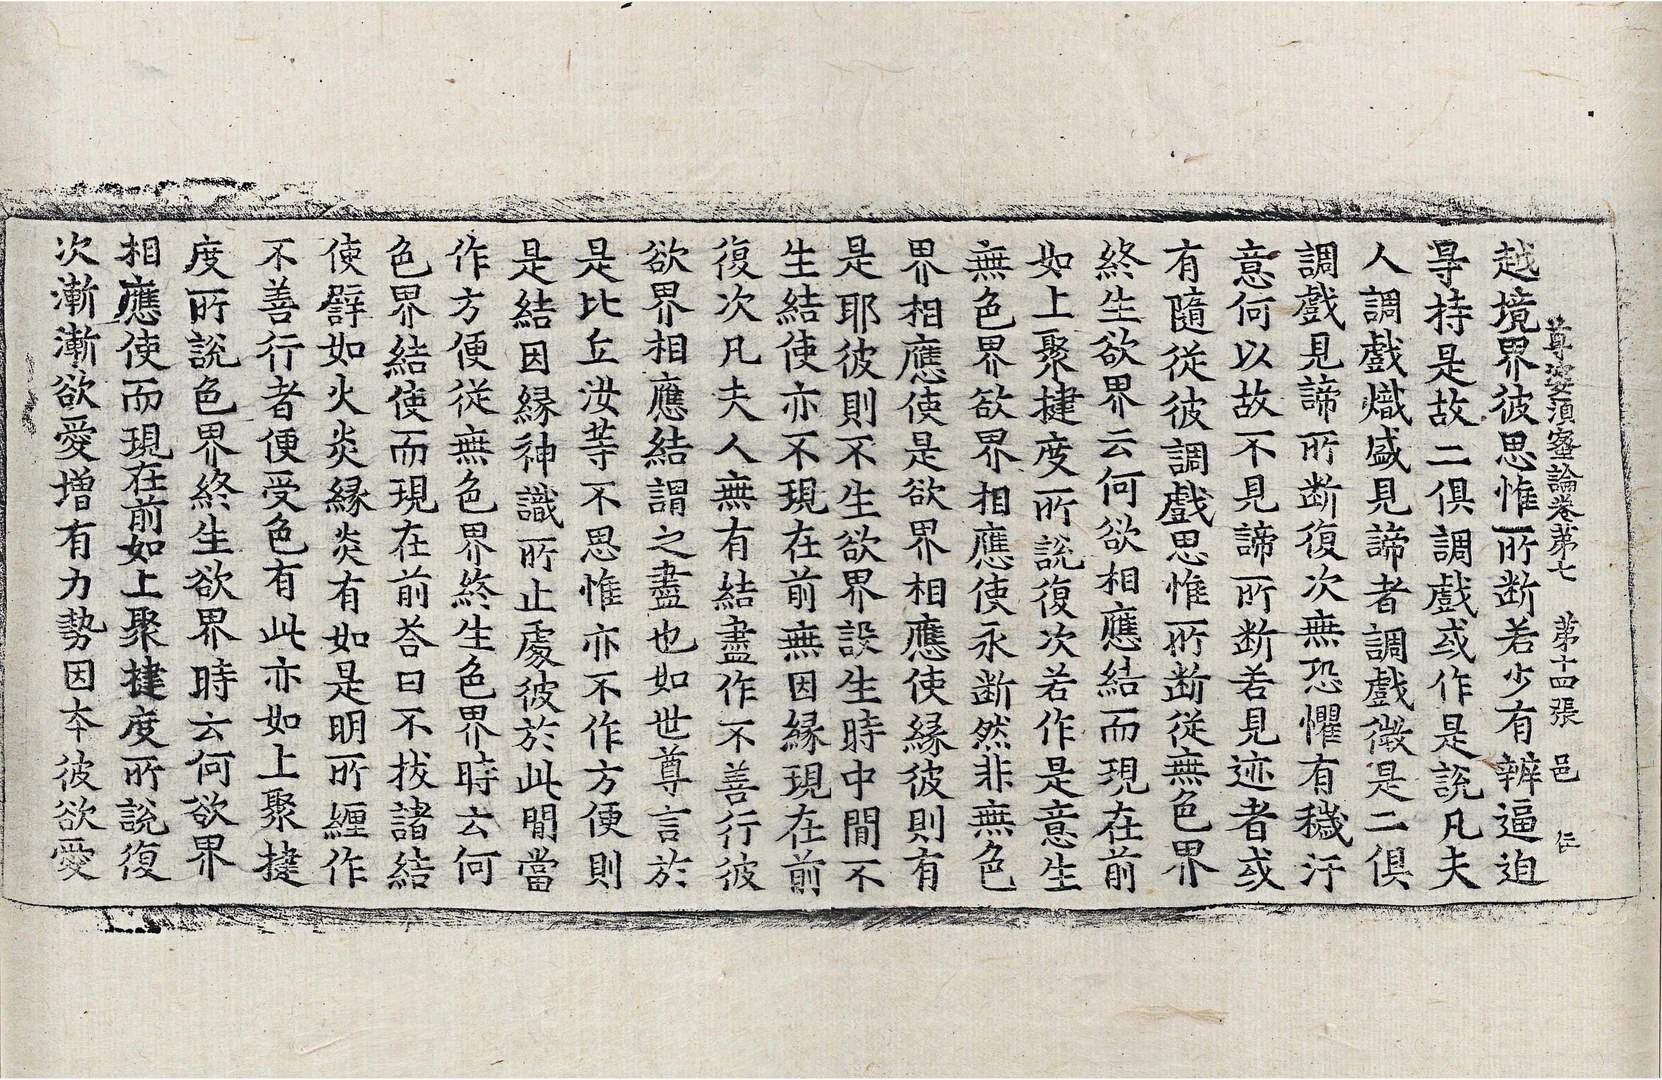 尊婆須蜜論卷苐七 苐十四張 邑 仁
越境界彼思惟所断若少有辨逼迫
㝵持是故二俱調戲或作是說凡夫
人調戲熾盛見諦者調戲微是二俱
調戲見諦所断復次無恐懼有穢汙
意何以故不見諦所断若見迹者或
有隨從彼調戲思惟所断從無色界
終生欲界云何欲相應結而現在前
如上聚揵度所說復次若作是意生
無色界欲界相應使永断然非無色
界相應使是欲界相應使縁彼則有
是耶彼則不生欲界設生時中閒不
生結使亦不現在前無因縁現在前
復次凡夫人無有結盡作不善行彼
欲界相應結謂之盡也如世尊言於
是比丘汝等不思惟亦不作方便則
是結因縁神識所止處彼於此閒當
作方便從無色界終生色界時云何
色界結使而現在前荅曰不拔諸結
使譬如火炎縁炎有如是明所纏作
不善行者便受色有此亦如上聚揵
度所說色界終生欲界時云何欲界
相應使而現在前如上聚揵度所說復
次漸漸欲愛増有力勢因夲彼欲愛